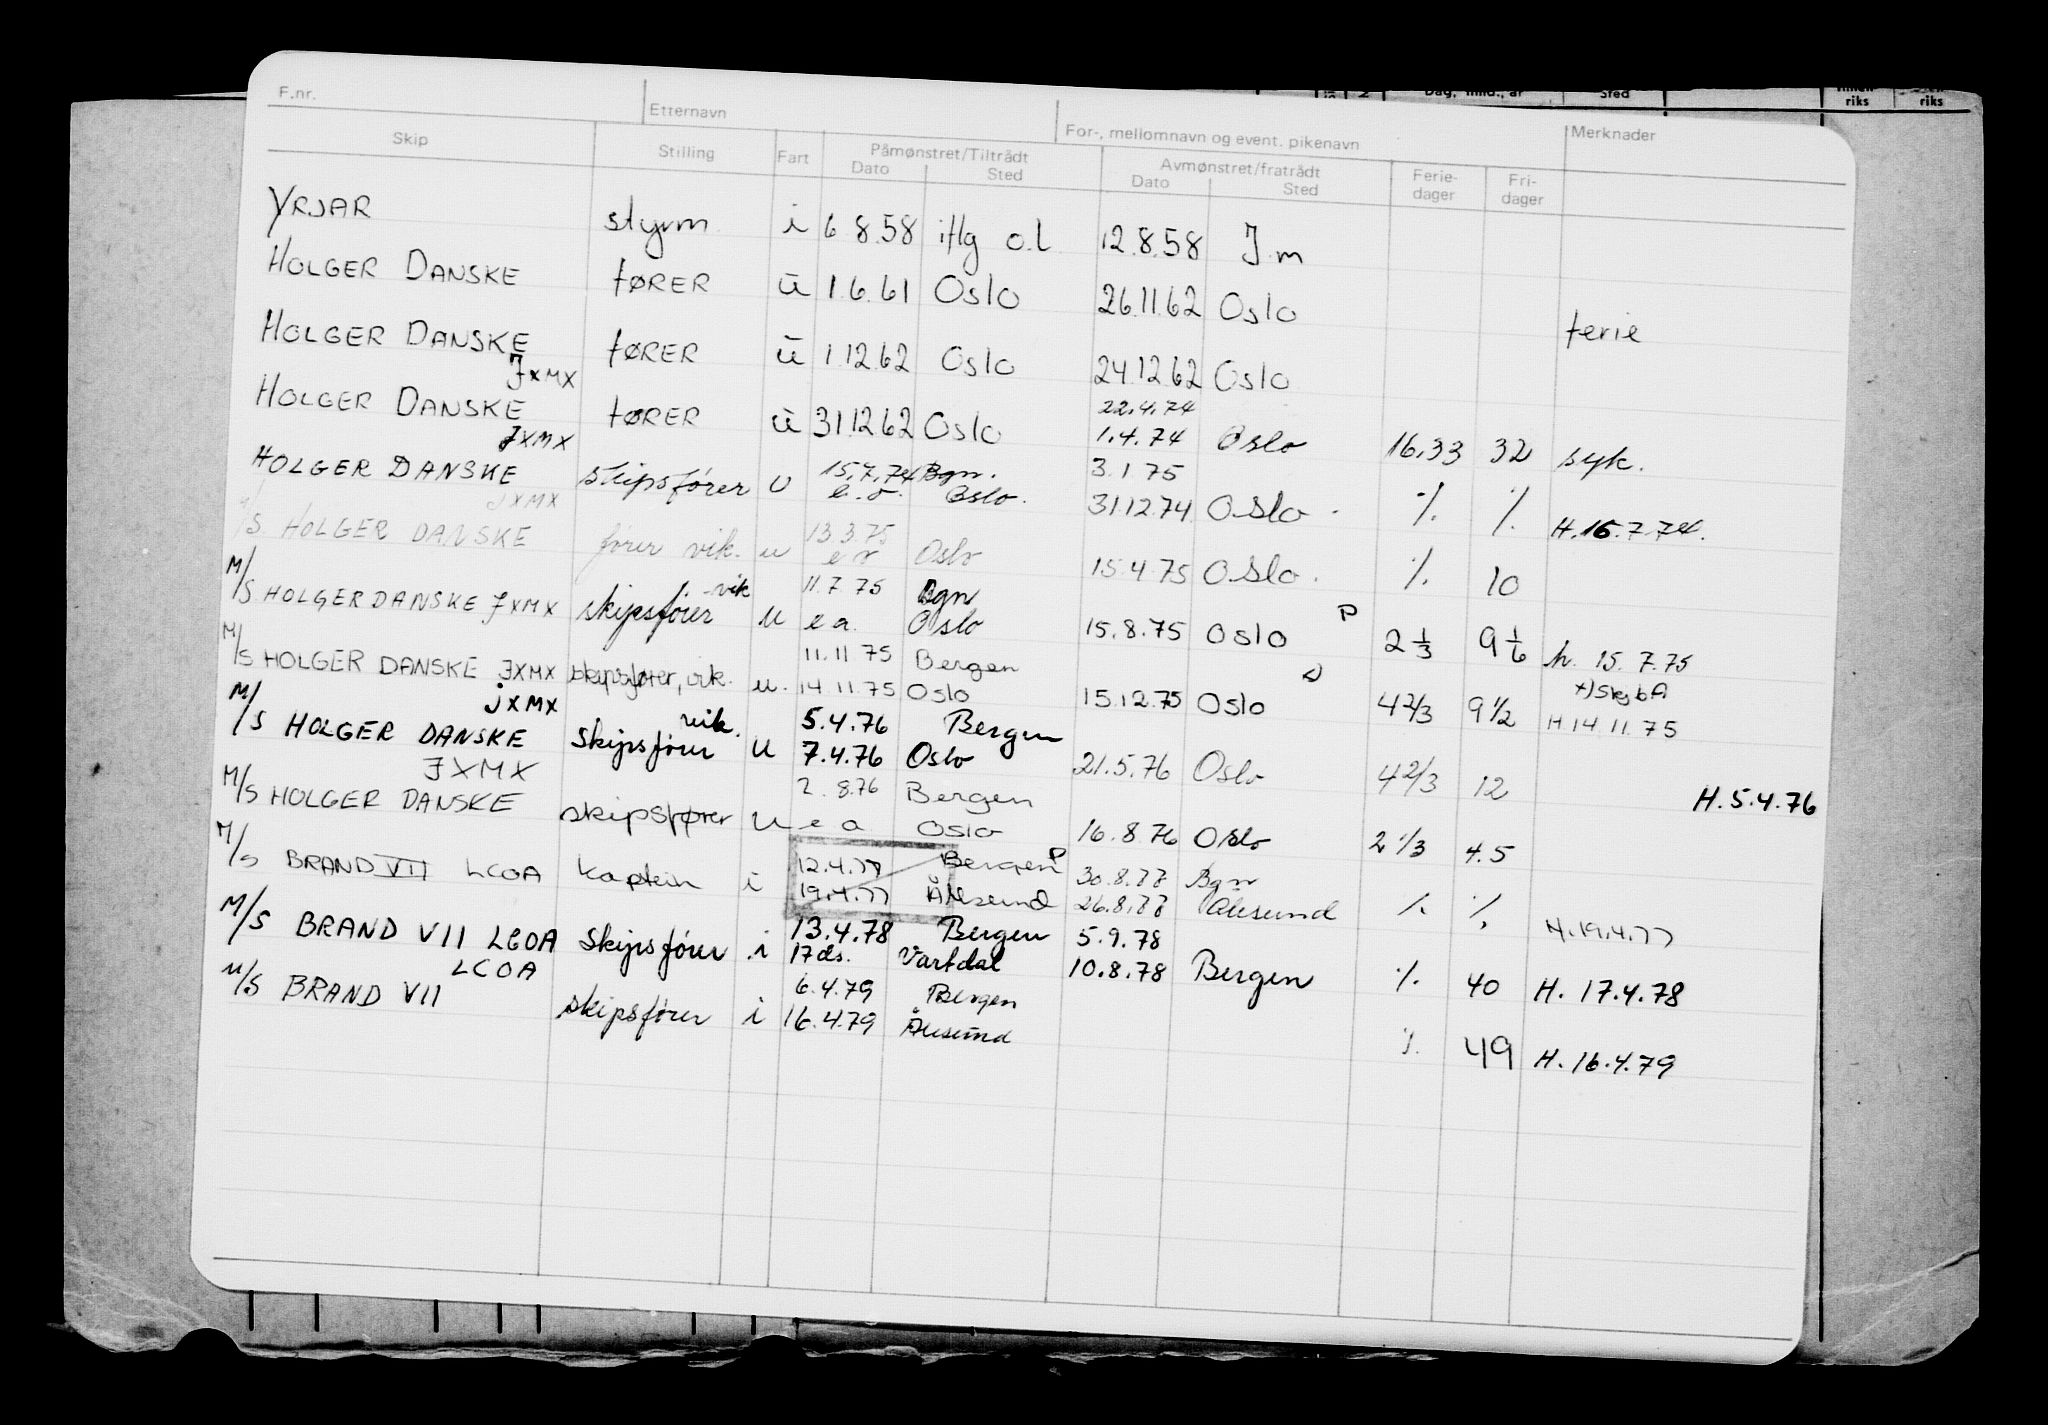 Dag, mnd., år Sted riks riks
F.nr. Etternavn For-, mellomnavn og event. pikenavn Merknader
Skip Stilling Fart Påmønstret/Tiltrådt Avmønstret/fratrådt Ferie- Fri-
Dato Sted Dato Sted dager dager
YRJAR styrm i 6 8.58 iflg o.l 12.8.58 J.m
HOLGER DANSKE fØRER ū 1.6.61 Oslo 26.11.62 Oslo ferie
HOLGER DANSKE fØRER ū 1.12.62 Oslo 24.12.62 Oslo
JXMX 22.4.74
HOLGER DANSKE fØRER ū 31.12.62 Oslo 1.4.74 Oslo 16,33 32 syk.
JXMX 15.7.74 Bgn. 3.1 75
HOLGER DANSKE skipsfører u Oslo. 31.12.74 Oslo. ./. ./. H.16.7.74.
JXMX 13.3.75
M/S HOLGER DANSKE fører vik. u Oslo 15.4.75 Oslo. ./. 10
vik 11.7.75 Bgn
M/S HOLGER DANSKE JXMX skipsfører u e a. Oslo 15.8.75 Oslo P 2 1/3 9 1/6 h. 15.7.75
11.11 75 Bergen
M/S HOLGER DANSKE JXMX skipsfører, vik. u. 14.11.75 Oslo 15.12.75 Oslo 4 2/3 9 1/2 H 14.11.75
JXMX vik. 5.4.76 Bergen
M/S HOLGER DANSKE Skipsfører u 7.4.76 Oslo 21.5.76 Oslo 4 2/3 12 H.5.4.76
JXMX 2.8.76 Bergen
M/S HOLGER DANSKE skipsfører u e a Oslo 16.8.76 Oslo 2 1/3 4.5
12.4.77 Bergen P 30.8.77 Bgn
M/S BRAND VII LCOA kaptein i 19.4.77 Ålesund 26.8.77 Ålesund ./. ./. H.19.4.77
13.4.78 Bergen 5.9.78
M/S BRAND VII LCOA Skipsfører i 17 ds. Vartdal 10.8.78 Bergen ./. 40 H. 17.4.78
LCOA 6.4.79 Bergen
M/S BRAND VII skipsfører i 16.4.79 Ålesund ./. 49 H. 16.4.79